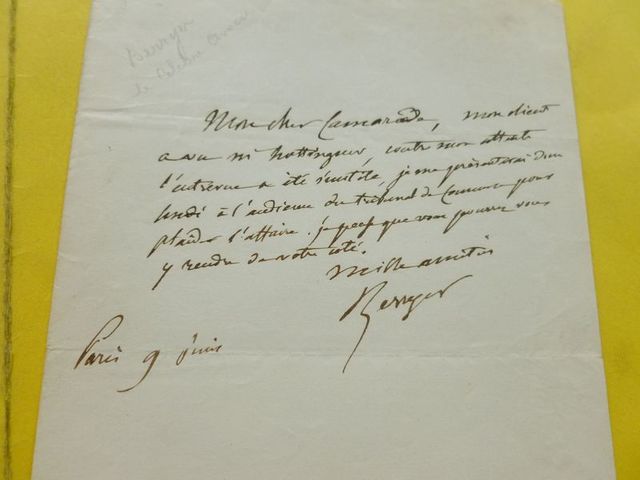 Berryer
le célèbre avocat
Mon cher Camarade, mon client
a vu mr hottinguer, contre mon attente
l'entrevue a été inutile, je me présenterai donc
lundi à l'audience du tribunal de commerce pour
plaider l'affaire. je pense que vous pourrez vous
y rendre de votre côté.
mille amitiés
Berryer
Paris 9 juin